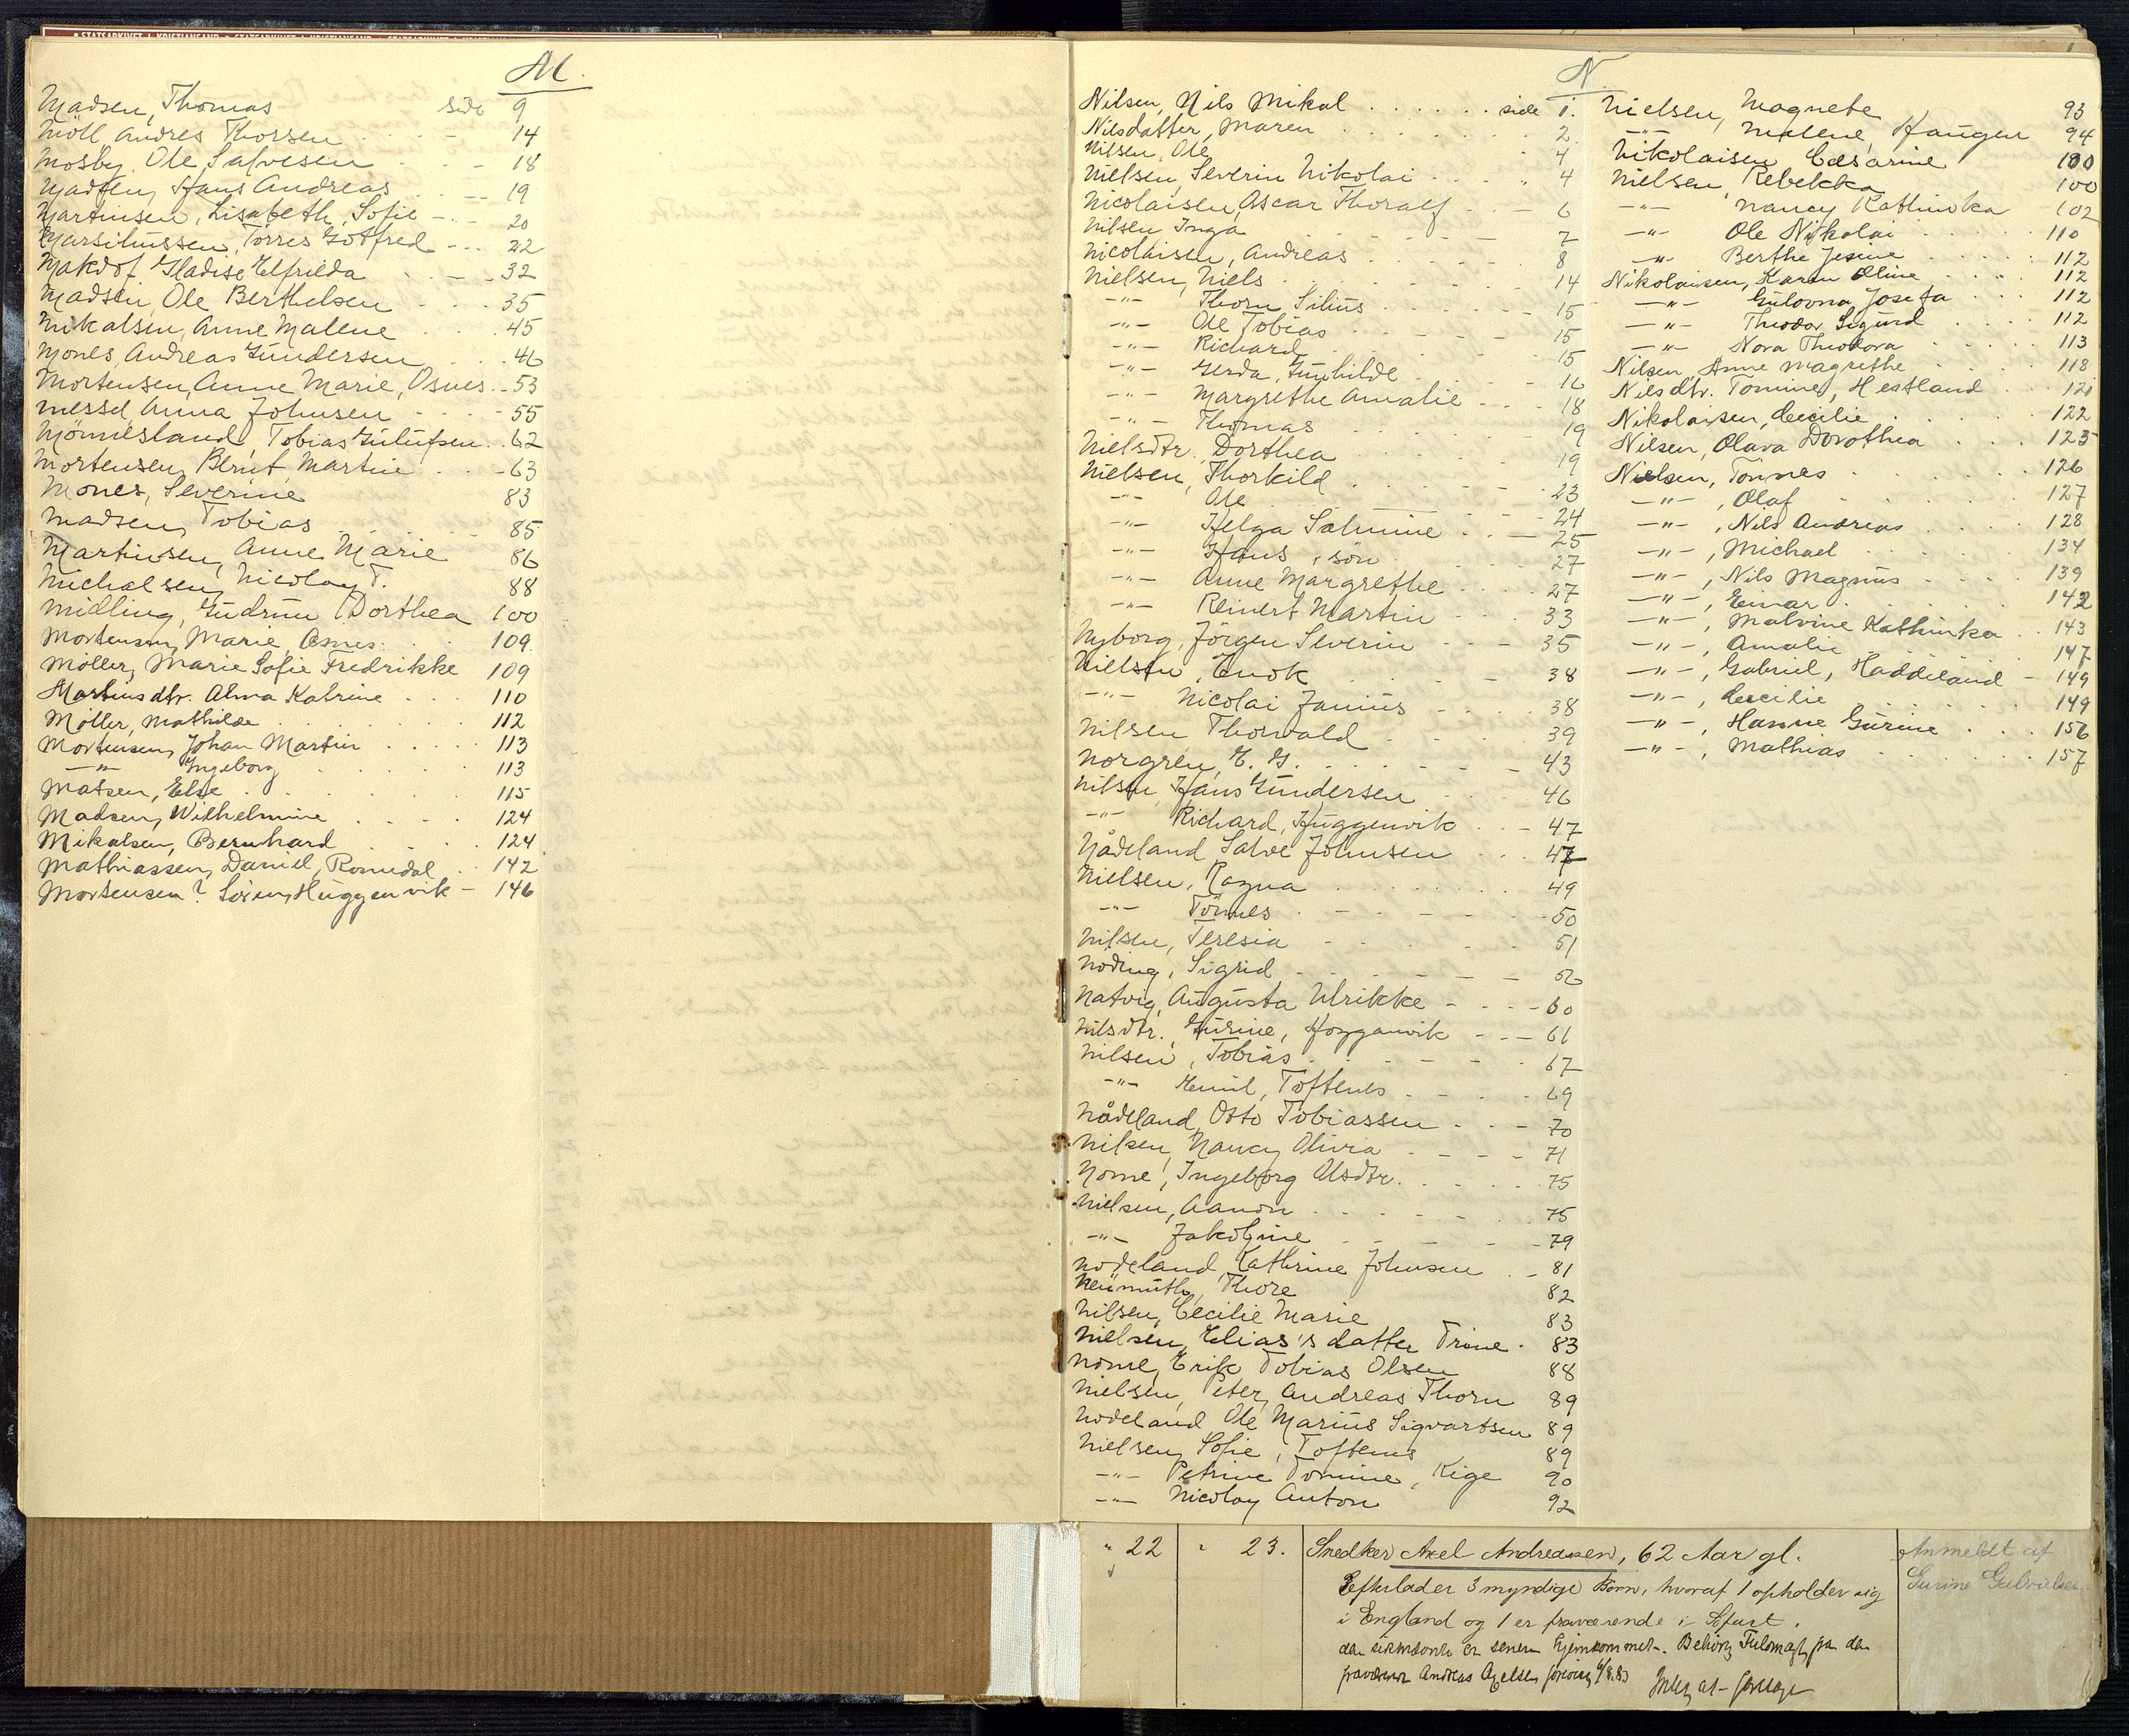 STATSARKIVET I KRISTIANSAND • STATSARKIVET I KRISTIANSAND • STATSARKIVET I KRISTIANSAND
M.
Madsen, Thomas side 9
Möll Andres Thorsen 14
Mosby, Ole Salvesen 18
Madsen, Hans Andreas 19
Martinsen, Lisabeth, Sofie 20
Marsiliussen, Törres Gotfred 22
Makdof Gladise Elfrida 32
Madsen, Ole Berthelsen 35
Mikalsen, Anne Malene 45
Mones, Andreas Gundersen 46
Mortensen, Anne Marie, Osnes 53
Messel, Anna Johnsen 55
Mönnesland, Tobias Gulufsen 62
Mortensen, Bernt Martin 63
Mones, Severine 83
Madsen, Tobias 85
Martinsen, Anne Marie 86
Michalsen, Nicolay T. 88
Midling, Gudrun Dorthea 100
Mortensen, Marie, Osnes 109
Möller, Marie Sofie Fredrikke 109
Martinsdtr. Alma Katrine 110
Möller, Mathilde 112
Mortensen, Johan Martin 113
—"— Ingeborg 113
Matsen, Else 115
Madsen, Wilhelmine 124
Mikalsen, Bernhard 124
Mathiassen, Daniel, Romedal 142
Mortensen? Sören, Huggenvik 146
N.
Nilsen, Nils Mikal side 1.
Nilsdatter, Maren 2
Nilsen, Ole 4
Nielsen, Severin Nikolai 4
Nicolaisen, Oscar Thoralf 6
Nilsen Inga 7
Nicolaisen, Andreas 8
Nielsen, Niels 14
—"— Thorn Silius 15
—"— Ole Tobias 15
—"— Richard 15
—"— Gerda, Gunhilde 16
—"— Margrethe Amalie 18
—"— Thomas 19
Nielsdtr. Dorthea 19
Nielsen, Thorkild 23
—"— Ole 24
—"— Helga Salmine 25
—"— Hans, sön 27
—"— Anne Margrethe 27
—"— Reinert Martin 33
Nyborg, Jörgen Severin 35
Nielsen, Enok 38
—"— Nicolai Junius 38
Nilsen Thorvald 39
Norgren, E. G. 43
Nilsen Hans Gundersen 46
—"— Richard, Huggenvik 47
Nådeland, Salve Johnsen 47
Nielsen, Ragna 49
—"— Tönnes 50
Nilsen, Teresia 51
Nöding, Sigrid 52
Natvig, Augusta Ulrikke 60
Nilsdtr., Gurine, Hogganvik 61
Nilsen, Tobias 67
—"— Emil, Toftenes 69
Nådeland, Otto Tobiassen 70
Nilsen, Nancy Olivia 71
Nome, Ingeborg Olsdtr. 75
Nielsen, Aanon 75
—"— Jakobine 79
Nodeland, Kathrine Johnsen 81
Neumuth, Thore 82
Nilsen, Cecilie Marie 83
Nielsen, Elias's datter Trine 83
Nome, Erik Tobias Olsen 88
Nielsen, Peter Andreas Thorn 89
Nodeland Ole Marius Sigvartsen 89
Nielsen, Sofie, Toftenes 89
—"— Petrine Tomine, Kige 90
—"— Nicolay Anton 92
Nielsen, Magnete 93
—"— Malene, Haugen 94
Nikolaisen, Cesarine 100
Nielsen, Rebekka 100
—"— Nancy Kathinka 102
—"— Ole Nikolai 110
—"— Berthe Jesine 112
Nikolaisen, Karen Oline 112
—"— Gulovna Josefa 112
—"— Theodor Sigurd 112
—"— Nora Theodora 113
Nilsen, Anne Magrethe 118
Nilsdtr. Tomine, Hestland 121
Nikolaisen, Cecilie 122
Nilsen, Olava Dorothea 123
Nielsen, Tönnes 126
—"—, Olaf 127
—"—, Nils Andreas 128
—"—, Michael 134
—"—, Nils Magnus 139
—"—, Einar 142
—"—, Malvine Kathinka 143
—"—, Amalie 147
—"—, Gabriel, Haddeland 149
—"—, Cecilie 149
—"—, Hanne Gurine 156
—"—, Mathias 157
" 22 " 23. Snedker Axel Andreasen, 62 Aar gl.
Efterlader 3 myndige Børn, hvoraf 1 opholder sig
i England og 1 er fraværende i Søfart.
er senere hjemkommet. Behörig Fuldmagt fra den
fraværende Andreas Axelsen 6/8.83
Anmeldt af
Surine Gabrielsen